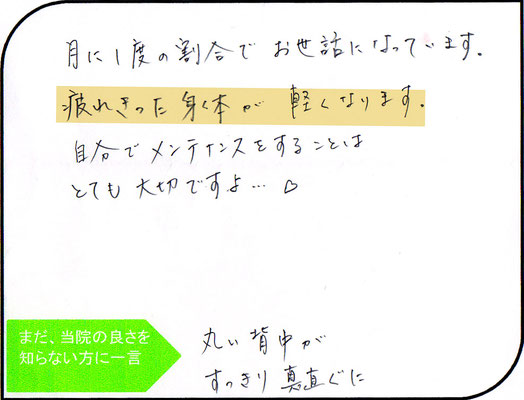 月に1度の割合でお世話になっています。
疲れきった身体が軽くなります。
自分でメンテナンスをすることは
とても大切ですよ…♡
まだ、当院の良さを
知らない方に一言
丸い背中が
すっきり真直ぐに